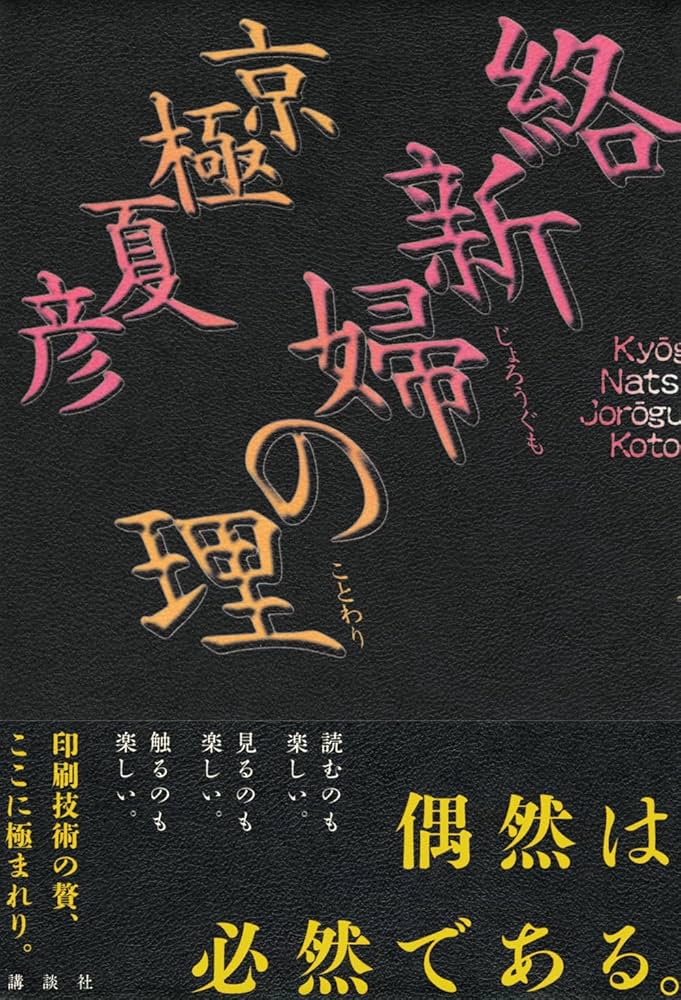 絡新婦の理
じょろうぐも
ことわり
京極夏彦
Kyōg
Nats
Jorōgu
Koto
偶然は
必然である。
読むのも
楽しい。
見るのも
楽しい。
触るのも
楽しい。
印刷技術の贅、
ここに極まれり。
講談社